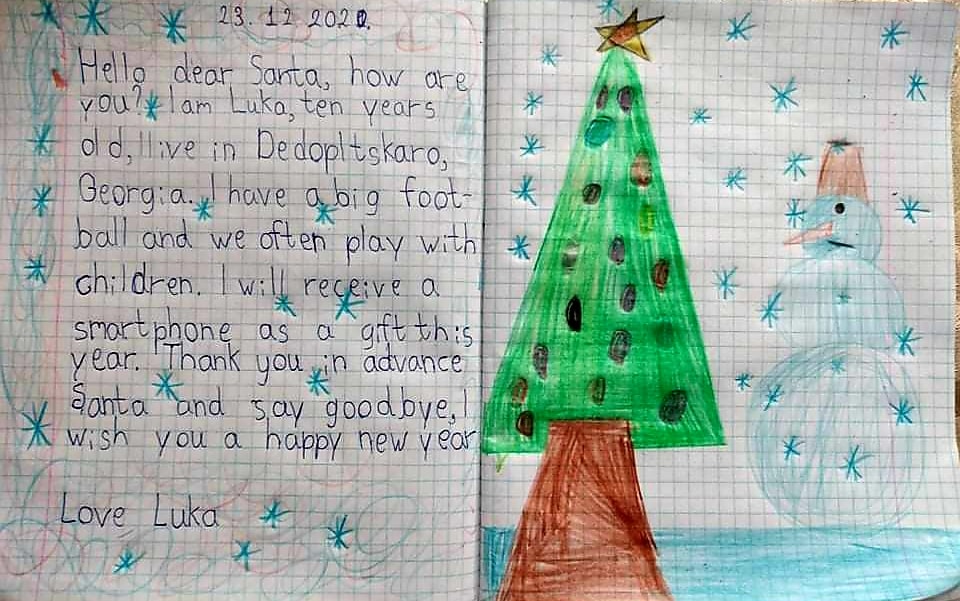 23.12.2020.
Hello dear Santa, how are
you? I am Luka, ten years
old, I live in Dedopltskaro,
Georgia. I have a big foot-
ball and we often play with
children. I will receive a
smartphone as a gift this
year. Thank you in advance
Santa and say goodbye, I
wish you a happy new year
Love Luka